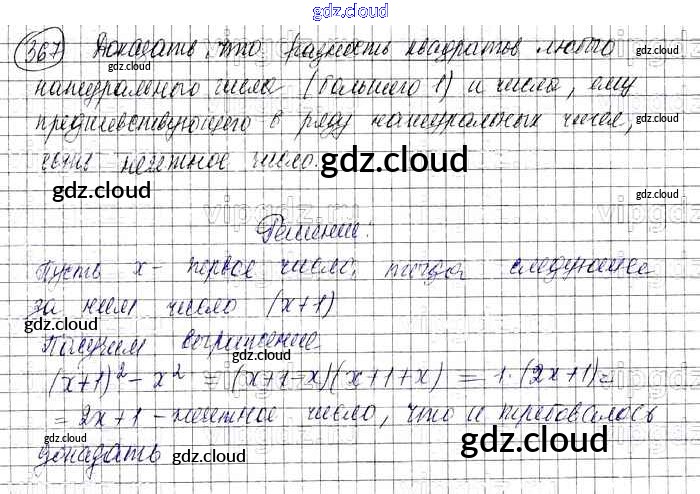 gdz.cloud
367 Доказать, что разность квадратов любого
gdz.cloud
натурального числа (большего 1) и числа, ему
предшествующего в ряду натуральных чисел,
gdz.cloud
есть нечетное число.
gdz.cloud
gdz.cloud
vipgdz.ru
vipgdz
Решение:
Пусть x - первое число, тогда следующее
за ним число (x+1)
gdz.cloud
gdz.cloud
Получим выражение
gdz.cloud
(x+1)² - x² = (x+1-x)(x+1+x) = 1·(2x+1)=
gdz.cloud
= 2x+1 - нечетное число, что и требовалось
gdz.cloud
доказать
gdz.cloud